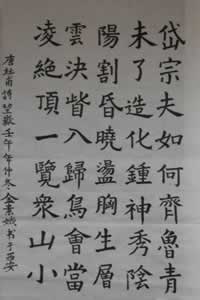 岱宗夫如何齊魯青
未了造化鍾神秀陰
陽割昏曉盪胸生層
雲決眥入歸鳥會當
凌絕頂一覽眾山小
唐杜甫詩望嶽壬午年仲冬金素娥书于西安